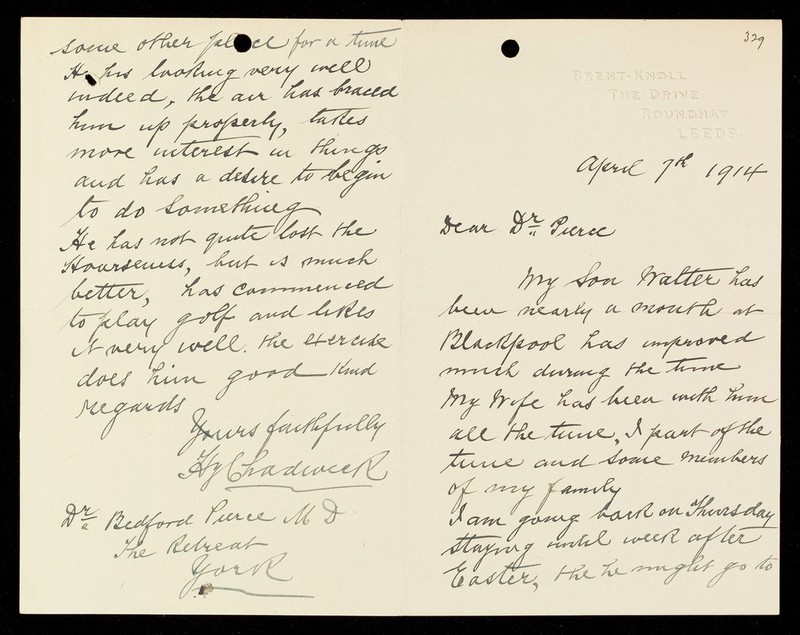 329
BRENT-KNOLL.
THE DRIVE.
ROUNDHAY
LEEDS.
April 7th 1914
Dear Dr Pierce
My Son Walter has
been nearly a month at
Blackpool has improved
much during the time
My Wife has been with him
all the time, I part of the
time and some members
of my family
I am going back on Thursday
staying until week after
Easter, the he might go to
some other place for a time
He his looking very well
indeed, the air has braced
him up properly, takes
more interest in things
and has a desire to begin
to do something
He has not quite lost the
Hoarseness, but is much
better, has commenced
to play golf and likes
it very well. the exercise
does him good Kind
regards
Yours faithfully
Hy Chadwick
Dr Bedford Pierce M D
The Retreat
York